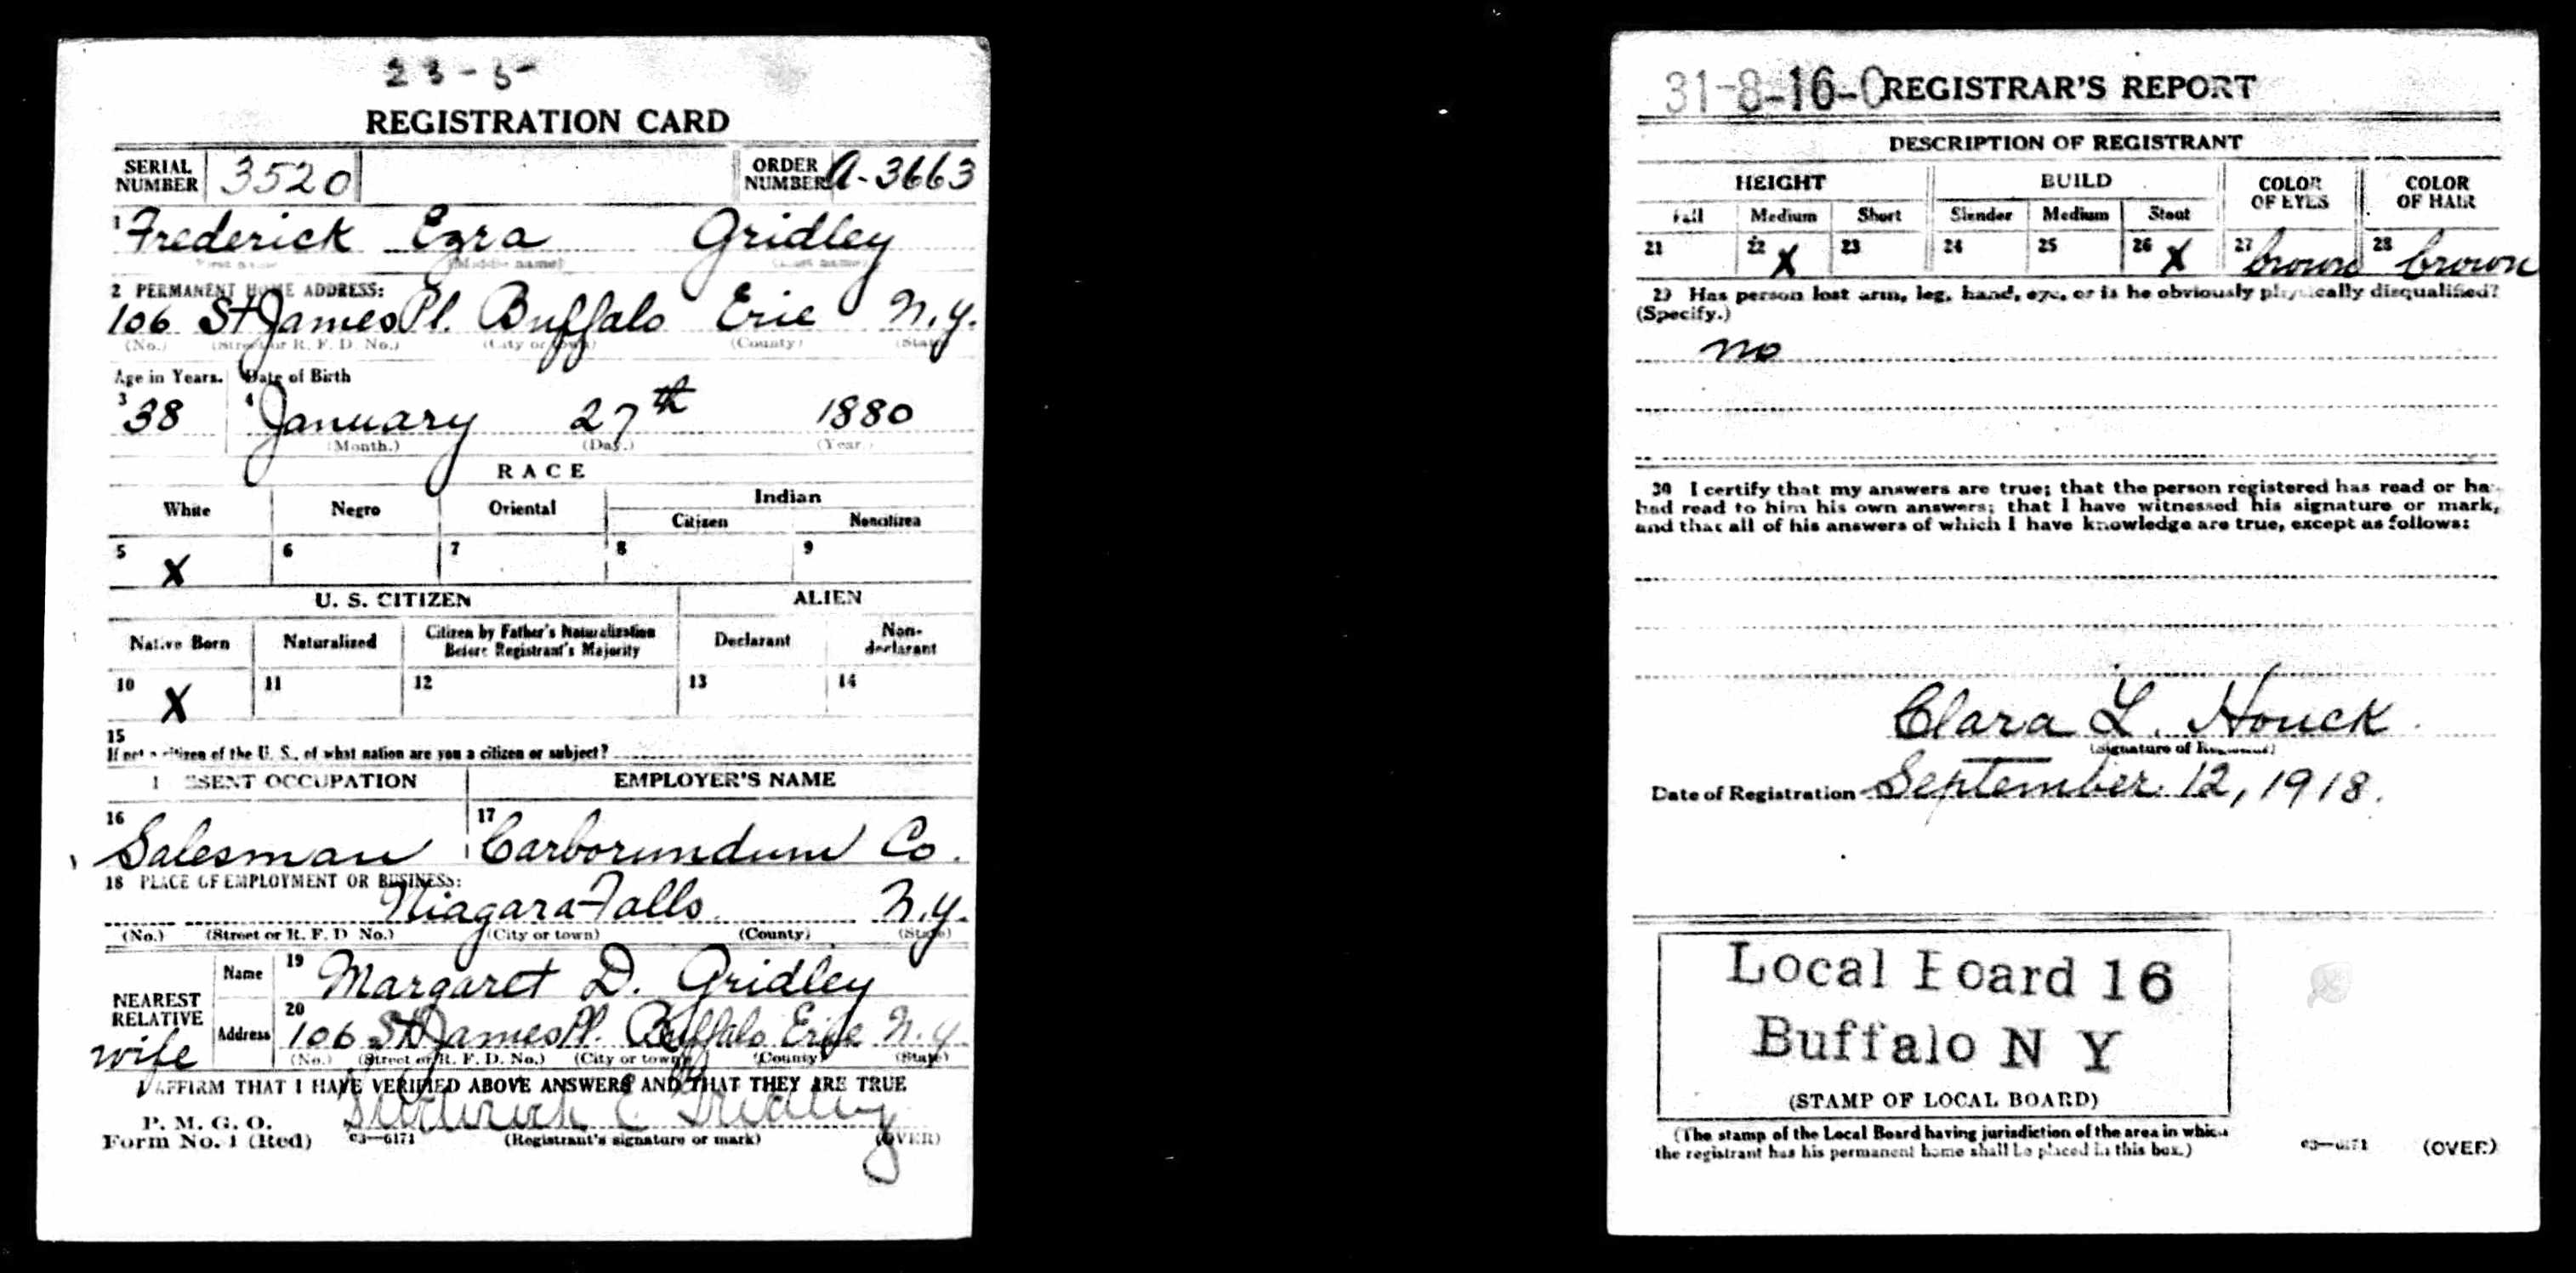 23-5-
REGISTRATION CARD
SERIAL NUMBER 3520 ORDER NUMBER A-3663
1 Frederick Ezra Gridley
(First name) (Middle name) (Last name)
2 PERMANENT HOME ADDRESS:
106 St James Pl. Buffalo Erie N.Y.
(No.) (Street or R. F. D. No.) (City or town) (County) (State)
Age in Years. Date of Birth
3 38 4 January 27th 1880
(Month.) (Day.) (Year.)
RACE
White Negro Oriental Indian
Citizen Noncitizen
5 X 6 7 8 9
U. S. CITIZEN ALIEN
Native Born Naturalized Citizen by Father's Naturalization Before Registrant's Majority Declarant Non-declarant
10 X 11 12 13 14
15
If not a citizen of the U. S., of what nation are you a citizen or subject?
PRESENT OCCUPATION EMPLOYER'S NAME
16 Salesman 17 Carborundum Co.
18 PLACE OF EMPLOYMENT OR BUSINESS:
Niagara Falls N.Y.
(No.) (Street or R. F. D. No.) (City or town) (County) (State)
NEAREST RELATIVE Name 19 Margaret D. Gridley
wife Address 20 106 St James Pl. Buffalo Erie N.Y.
(No.) (Street or R. F. D. No.) (City or town) (County) (State)
I AFFIRM THAT I HAVE VERIFIED ABOVE ANSWERS AND THAT THEY ARE TRUE
P. M. G. O.
Form No. 1 (Red) 03—6171 Frederick E Gridley
(Registrant's signature or mark) (OVER)
31-8-16-C REGISTRAR'S REPORT
DESCRIPTION OF REGISTRANT
HEIGHT BUILD COLOR OF EYES COLOR OF HAIR
Tall Medium Short Slender Medium Stout
21 22 X 23 24 25 26 X 27 brown 28 brown
29 Has person lost arm, leg, hand, eye, or is he obviously physically disqualified?
(Specify.)
no
30 I certify that my answers are true; that the person registered has read or has
had read to him his own answers; that I have witnessed his signature or mark,
and that all of his answers of which I have knowledge are true, except as follows:
Clara L. Houck
(Signature of Registrar)
Date of Registration September 12, 1918.
Local Board 16
Buffalo N Y
(STAMP OF LOCAL BOARD)
(The stamp of the Local Board having jurisdiction of the area in which
the registrant has his permanent home shall be placed in this box.)
03—6171 (OVER)